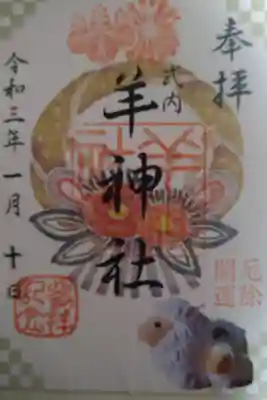 奉拝
式内
羊神社
令和三年一月十日
厄除
開運